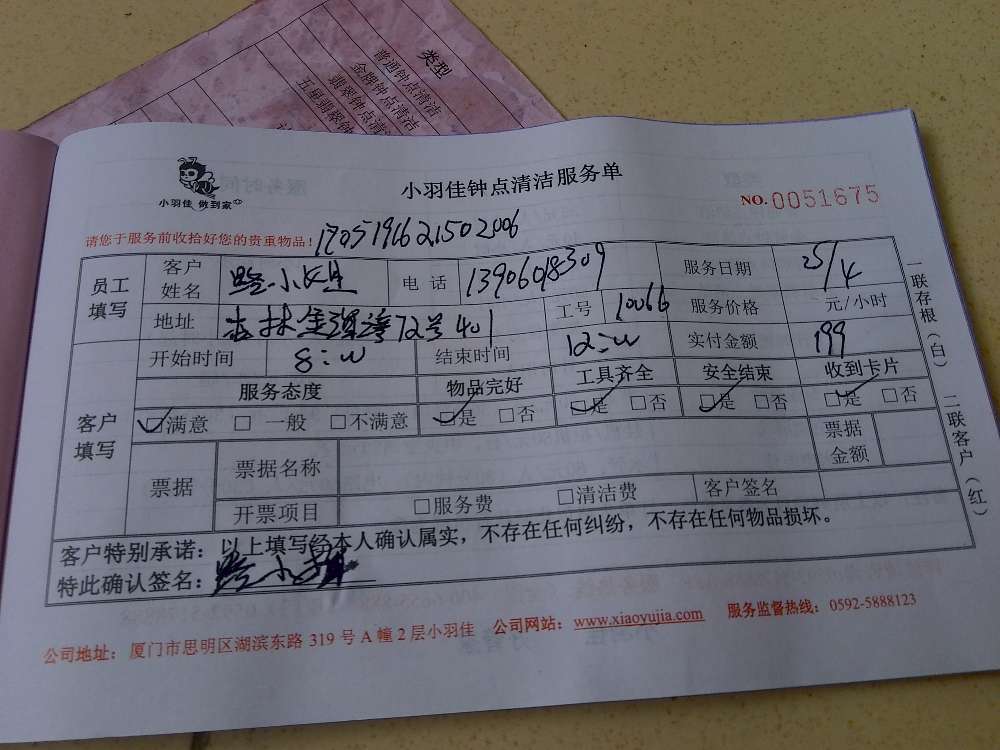 类型
普通钟点清洁
金牌钟点清洁
翡翠钟点清洁
五星翡翠钟
小羽佳 做到家
小羽佳钟点清洁服务单
NO. 0051675
请您于服务前收拾好您的贵重物品!
员工填写 客户姓名 电话 13906018309 服务日期 25/4
地址 72号401 工号 10066 服务价格 元/小时
客户填写 开始时间 8:00 结束时间 12:00 实付金额 199
服务态度 物品完好 工具齐全 安全结束 收到卡片
☑满意 □ 一般 □不满意 ☑是 □否 ☑是 □否 ☑是 □否 ☑是 □否
票据 票据名称 票据金额
开票项目 □服务费 □清洁费 客户签名
客户特别承诺:以上填写经本人确认属实,不存在任何纠纷,不存在任何物品损坏。
特此确认签名:
一联存根(白) 二联客户(红)
公司地址:厦门市思明区湖滨东路 319 号 A 幢 2 层小羽佳 公司网站:www.xiaoyujia.com 服务监督热线:0592-5888123